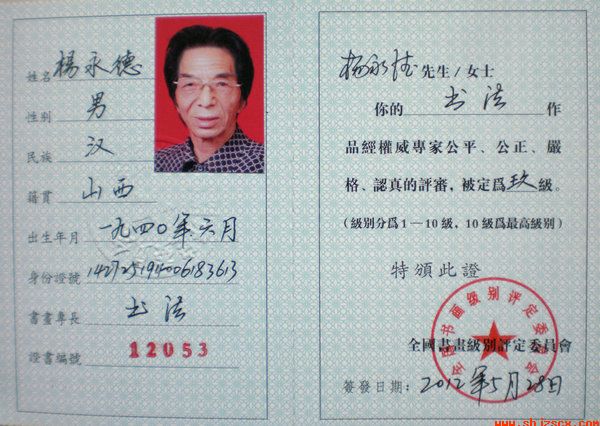 姓名 楊永德
性别 男
民族 汉
籍貫 山西
出生年月 一九四〇年六月
身份證號 142725194006183613
書畫專長 书法
證書編號 12053
杨永德 先生/女士
你的 书法 作
品經權威專家公平、公正、嚴
格、認真的評審，被定爲 玖 級。
(級别分爲1—10級，10級爲最高級别)
特頒此證
全国书画级别评定委员会
全國書畫級别評定委員會
簽發日期：2012年5月28日
www.shjzscx.com